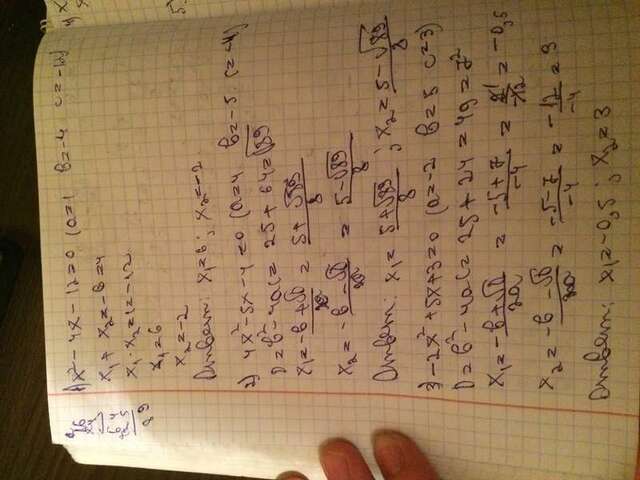 1) x² - 4x - 12 = 0 (a=1 в=-4 c=-12)
x₁ + x₂ = -в = 4
x₁ · x₂ = c = -12
x₁ = 6
x₂ = -2
Ответ: x₁=6; x₂=-2
2) 4x² - 5x - 4 = 0 (a=4 в=-5 c=-4)
D = в² - 4ac = 25 + 64 = √89
x₁ = (-в + √D)/2a = (5 + √89)/8
x₂ = (-в - √D)/2a = (5 - √89)/8
Ответ: x₁ = (5 + √89)/8 ; x₂ = (5 - √89)/8
3) -2x² + 5x + 3 = 0 (a=-2 в=5 c=3)
D = в² - 4ac = 25 + 24 = 49 = 7²
x₁ = (-в + √D)/2a = (-5 + 7)/-4 = 2 1/-4 2 = -0,5
x₂ = (-в - √D)/2a = (-5 - 7)/-4 = -12/-4 = 3
Ответ: x₁ = -0,5 ; x₂ = 3
4)
5)